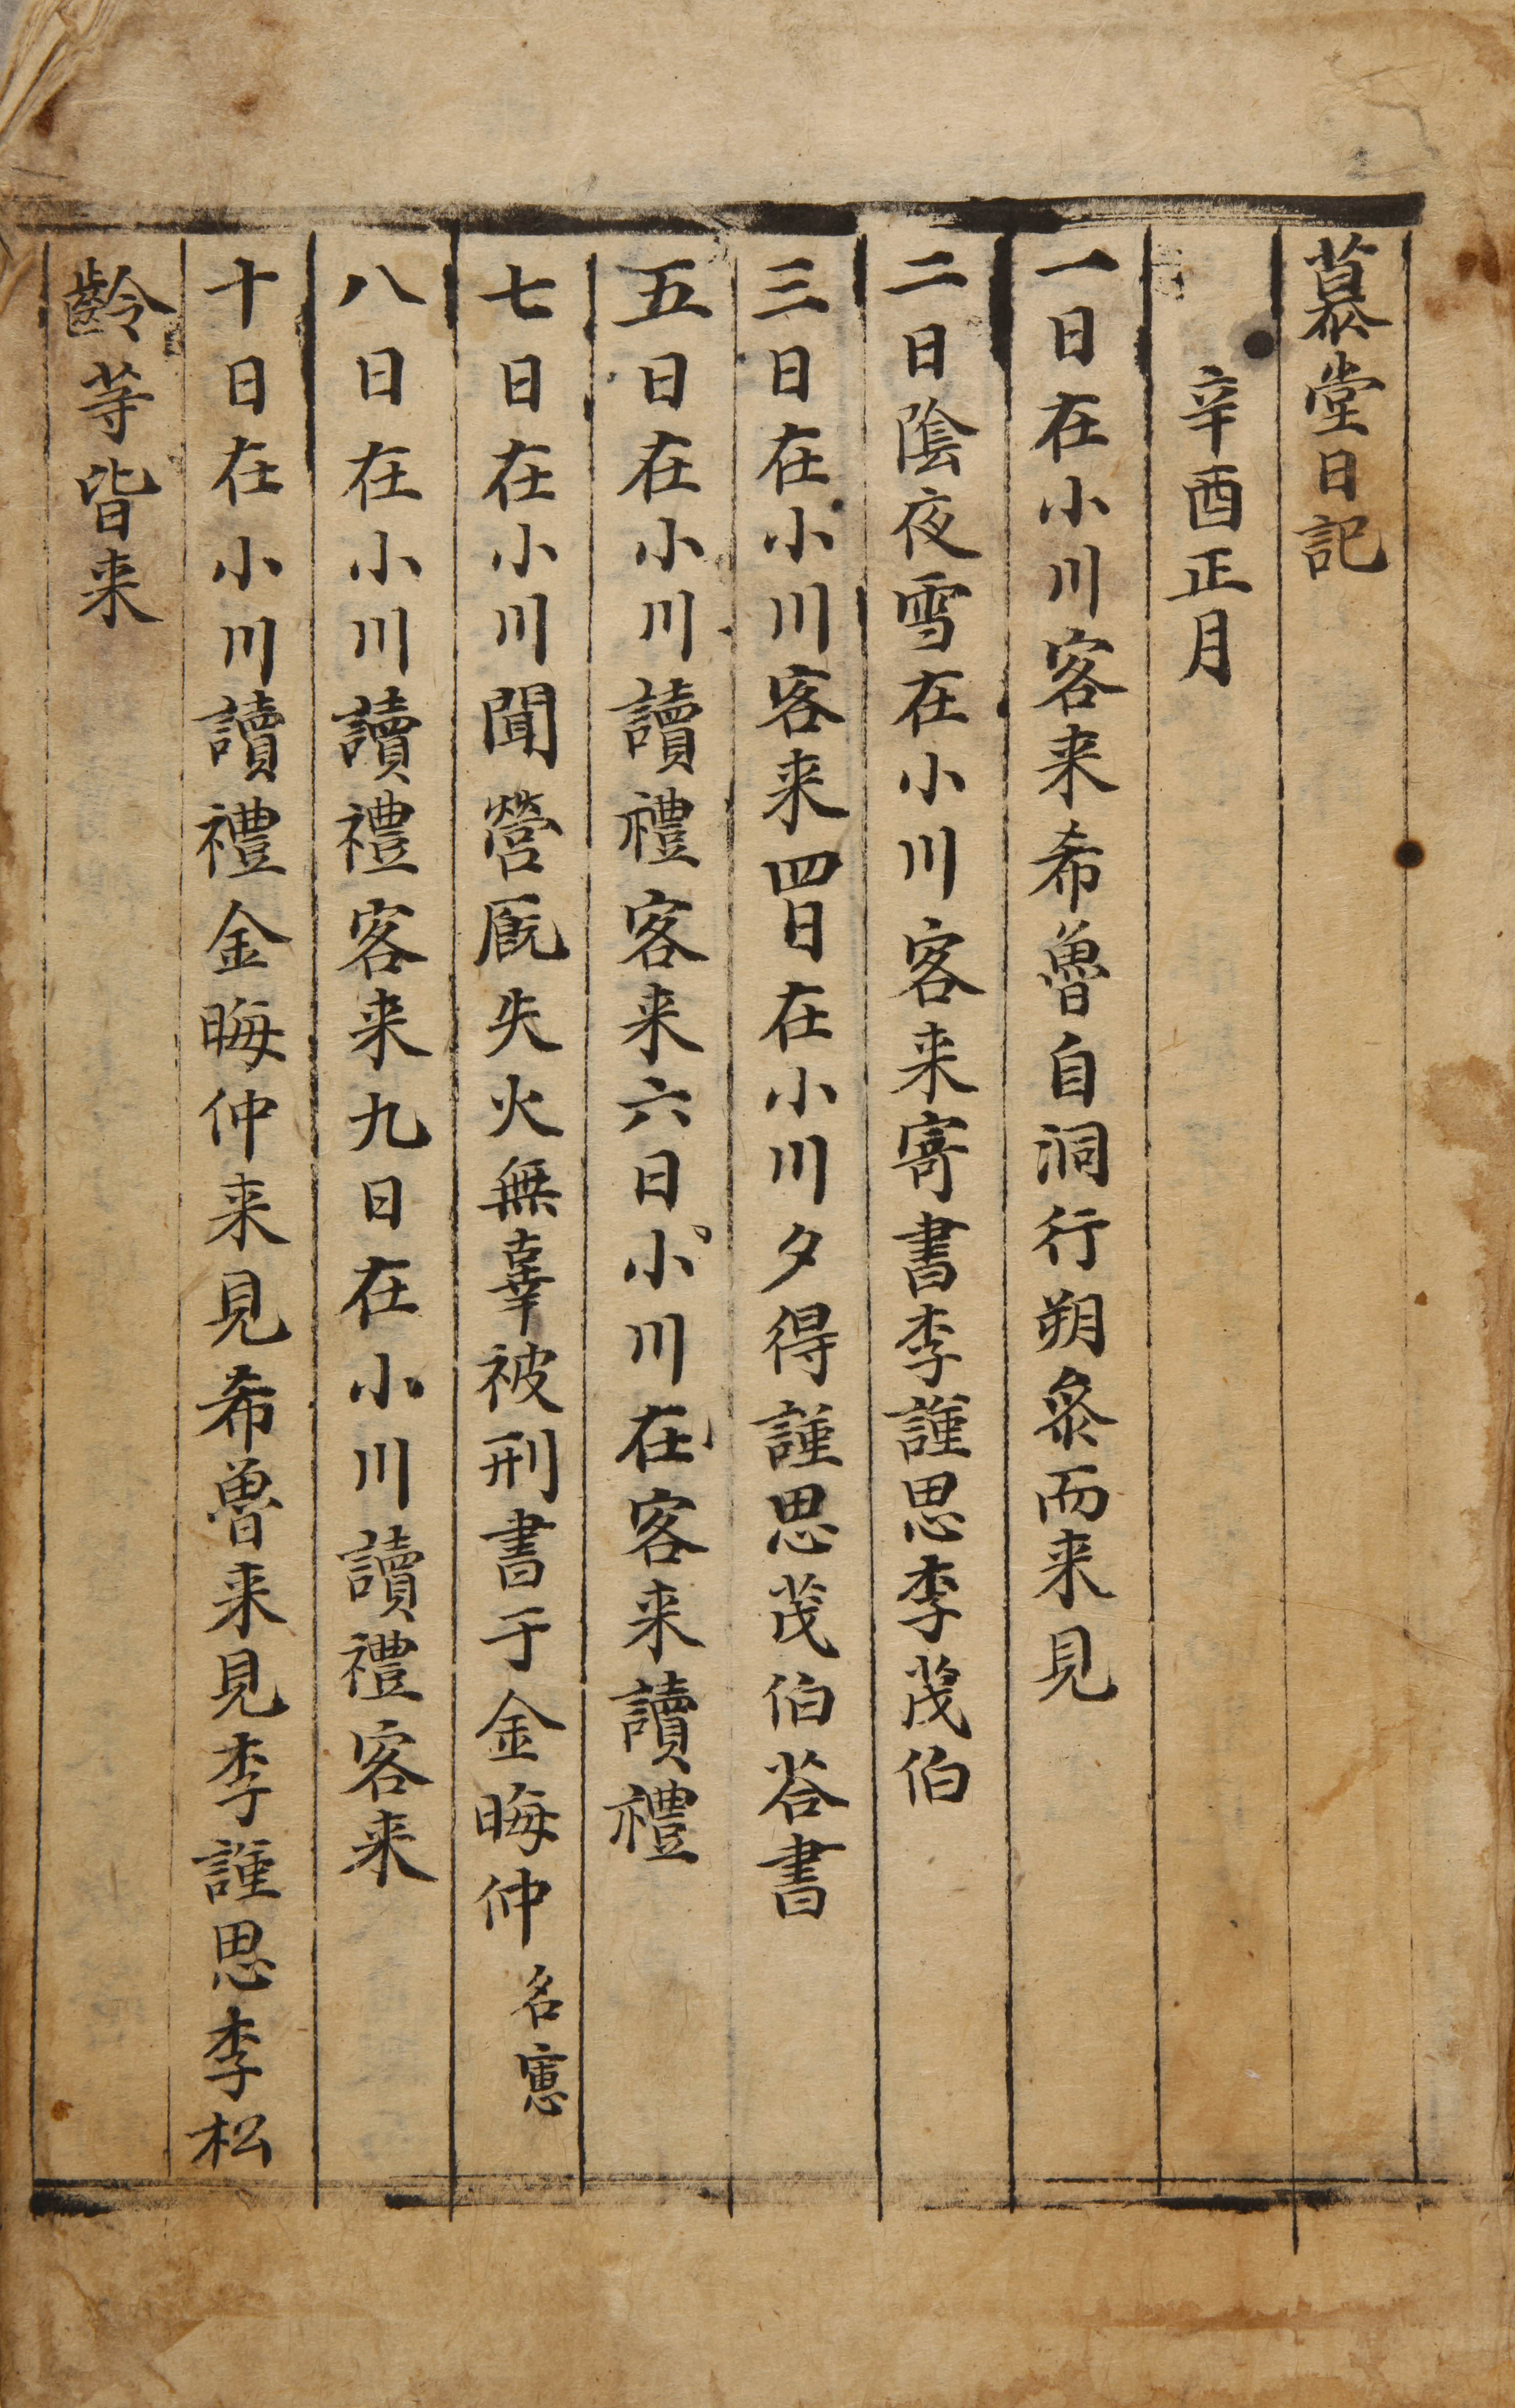 慕堂日記
辛酉正月
一日在小川客来希魯自洞行朔奠而来見
二日陰夜雪在小川客来寄書李謹思李茂伯
三日在小川客来四日在小川夕得謹思茂伯荅書
五日在小川讀禮客来六日小川在客来讀禮
七日在小川聞營厩失火無辜被刑書于金晦仲名寭
八日在小川讀禮客来九日在小川讀禮客来
十日在小川讀禮金晦仲来見希魯来見李謹思李松
齡等皆来